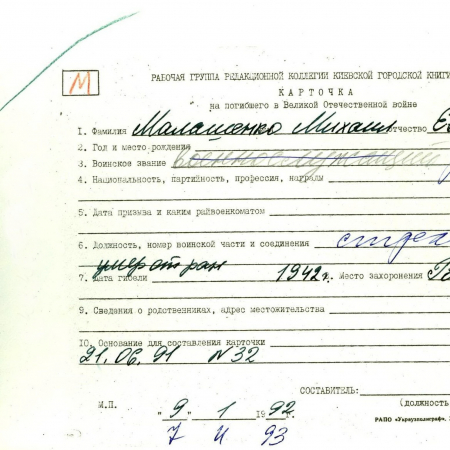 М
РАБОЧАЯ ГРУППА РЕДАКЦИОННОЙ КОЛЛЕГИИ КИЕВСКОЙ ГОРОДСКОЙ КНИГИ
КАРТОЧКА
на погибшего в Великой Отечественной войне
1. Фамилия Малашенко Михаил отчество
2. Год и место рождения
3. Воинское звание военнослужащий
4. Национальность, партийность, профессия, награды
5. Дата призыва и каким райвоенкоматом
6. Должность, номер воинской части и соединения
умер от ран
7. Дата гибели 1942 г. Место захоронения
9. Сведения о родственниках, адрес местожительства
10. Основание для составления карточки
21.06.91 N 32
СОСТАВИТЕЛЬ:
(должность
М.П. "9" 1 1992 г.
РАПО «Укрвузполиграф»,
7 II 93